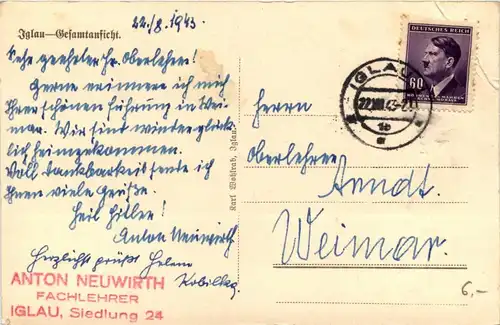 22./8. 1943
Iglau—Gesamtansicht.
Sehr geehrter Hr. Oberlehrer!
Gerne erinnere ich mich
Ihrer schönen Führung in Wei-
mar. Wir sind wieder glück-
lich heimgekommen.
Voll Dankbarkeit sende ich
Ihnen viele Grüße.
Heil Hitler!
Anton Neuwirth
Herzlichst grüßt Helene
ANTON NEUWIRTH
FACHLEHRER
IGLAU, Siedlung 24
Karl Wohlrab, Iglau.
DEUTSCHES REICH
60
BÖHMEN u. MÄHREN
IGLAU
22.VIII.43
1b
Herrn
Oberlehrer
Arndt.
Weimar.
6,-